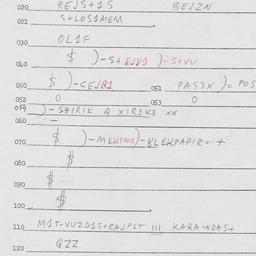 020 REJS+1S BEJZN
021 S+LOS1MEM
030 OL1F
040 $ )-S+EJV1 )-S+VU
050 $ )-CEJR1 051 PAS3X )= POS
052 0 053 0
054 )-S#IRIK Q XIR1KS XX
060 —
070 $ )-MEKINIR)-KLEKPAPIR= +
080 $
090 $
100 $
110 M1T-VUZD1S+RAJPST 111 KARA-NDAS+
120 QZZ